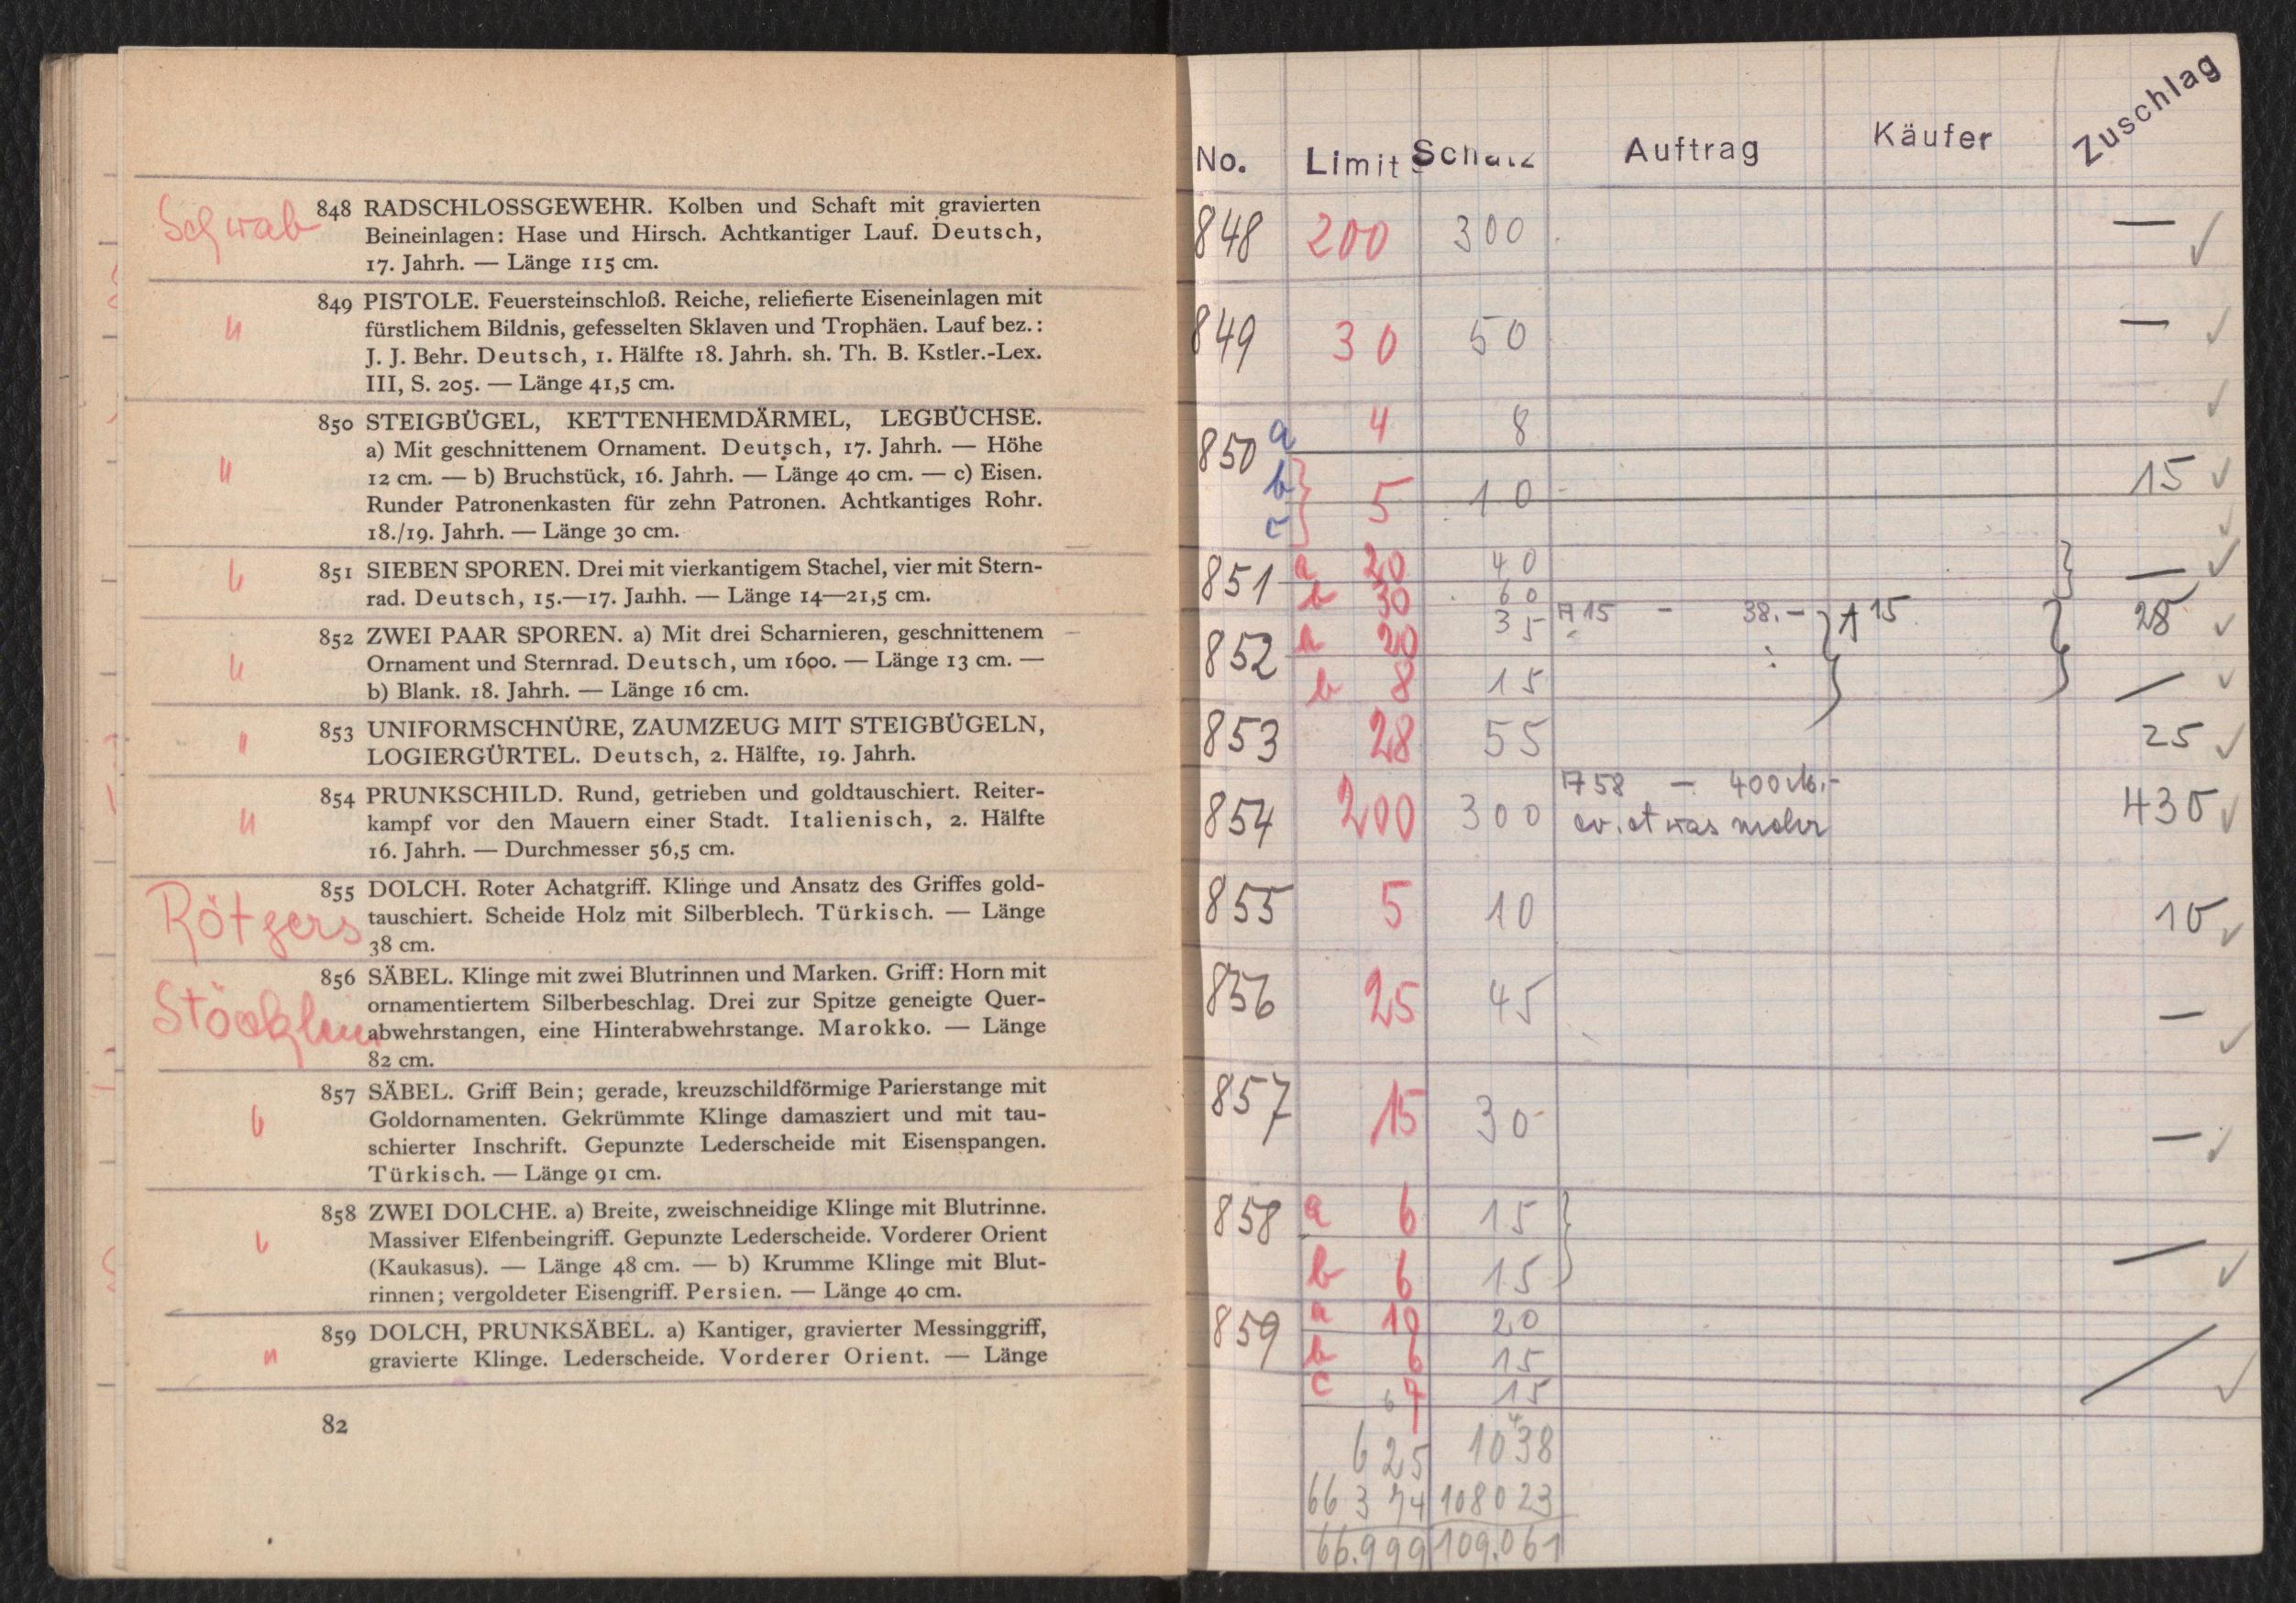 Schwab
848 RADSCHLOSSGEWEHR. Kolben und Schaft mit gravierten
Beineinlagen: Hase und Hirsch. Achtkantiger Lauf. Deutsch,
17. Jahrh. — Länge 115 cm.
"
849 PISTOLE. Feuersteinschloß. Reiche, reliefierte Eiseneinlagen mit
fürstlichem Bildnis, gefesselten Sklaven und Trophäen. Lauf bez.:
J. J. Behr. Deutsch, 1. Hälfte 18. Jahrh. sh. Th. B. Kstler.-Lex.
III, S. 205. — Länge 41,5 cm.
"
850 STEIGBÜGEL, KETTENHEMDÄRMEL, LEGBÜCHSE.
a) Mit geschnittenem Ornament. Deutsch, 17. Jahrh. — Höhe
12 cm. — b) Bruchstück, 16. Jahrh. — Länge 40 cm. — c) Eisen.
Runder Patronenkasten für zehn Patronen. Achtkantiges Rohr.
18./19. Jahrh. — Länge 30 cm.
"
851 SIEBEN SPOREN. Drei mit vierkantigem Stachel, vier mit Stern-
rad. Deutsch, 15.—17. Jaıhh. — Länge 14—21,5 cm.
"
852 ZWEI PAAR SPOREN. a) Mit drei Scharnieren, geschnittenem
Ornament und Sternrad. Deutsch, um 1600. — Länge 13 cm. —
b) Blank. 18. Jahrh. — Länge 16 cm.
"
853 UNIFORMSCHNÜRE, ZAUMZEUG MIT STEIGBÜGELN,
LOGIERGÜRTEL. Deutsch, 2. Hälfte, 19. Jahrh.
"
854 PRUNKSCHILD. Rund, getrieben und goldtauschiert. Reiter-
kampf vor den Mauern einer Stadt. Italienisch, 2. Hälfte
16. Jahrh. — Durchmesser 56,5 cm.
Rötgers
855 DOLCH. Roter Achatgriff. Klinge und Ansatz des Griffes gold-
tauschiert. Scheide Holz mit Silberblech. Türkisch. — Länge
38 cm.
856 SÄBEL. Klinge mit zwei Blutrinnen und Marken. Griff: Horn mit
ornamentiertem Silberbeschlag. Drei zur Spitze geneigte Quer-
abwehrstangen, eine Hinterabwehrstange. Marokko. — Länge
82 cm.
"
857 SÄBEL. Griff Bein; gerade, kreuzschildförmige Parierstange mit
Goldornamenten. Gekrümmte Klinge damasziert und mit tau-
schierter Inschrift. Gepunzte Lederscheide mit Eisenspangen.
Türkisch. — Länge 91 cm.
"
858 ZWEI DOLCHE. a) Breite, zweischneidige Klinge mit Blutrinne.
Massiver Elfenbeingriff. Gepunzte Lederscheide. Vorderer Orient
(Kaukasus). — Länge 48 cm. — b) Krumme Klinge mit Blut-
rinnen; vergoldeter Eisengriff. Persien. — Länge 40 cm.
"
859 DOLCH, PRUNKSÄBEL. a) Kantiger, gravierter Messinggriff,
gravierte Klinge. Lederscheide. Vorderer Orient. — Länge
82
No. Limit Schätz Auftrag Käufer Zuschlag
848 200 300 — ✓
849 30 50 — ✓
850 a 4 8 ✓
b 5 10 15 ✓
c ✓
851 a 20 40 — ✓
b 30 60
852 a 20 35 A 15 — 38.– A 15 28 ✓
b 8 15 — ✓
853 28 55 25 ✓
854 200 300 A 58 — 400 M.–
ev. etwas mehr 430 ✓
855 5 10 10 ✓
856 25 45 — ✓
857 15 30 — ✓
858 a 6 15
b 6 15 — ✓
859 a 10 20
b 6 15
c 7 15 — ✓
625 1038
66374 108023
66.999 109.061